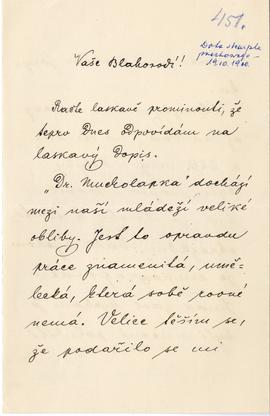 451.
Data stempla
pocztowego
19.10.1900.
Vaše Blahorodí!
Račte laskavě prominouti, že
teprv Dnes Dpovídám na
laskavý Dopis.
„Dr. Mucholapka" dochází
mezi naší mládeží veliké
obliby. Jest to opravdu
práce znamenitá, umě-
lecká, která sobě rovné
nemá. Velice těším se,
že podařilo se mi